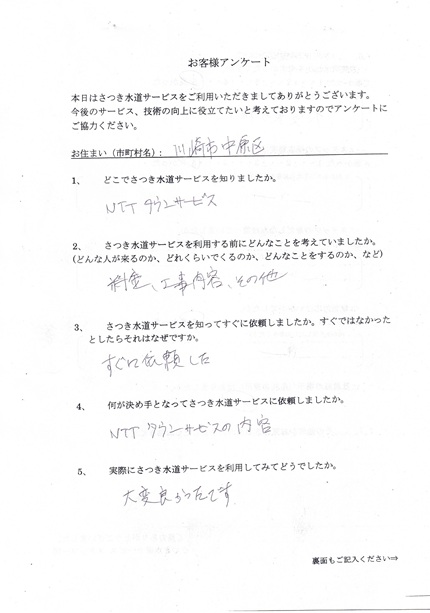 お客様アンケート
本日はさつき水道サービスをご利用いただきましてありがとうございます。
今後のサービス、技術の向上に役立てたいと考えておりますのでアンケートに
ご協力ください。
お住まい（市町村名）： 川崎市中原区
1、 どこでさつき水道サービスを知りましたか。
NTTタウンサービス
2、 さつき水道サービスを利用する前にどんなことを考えていましたか。
(どんな人が来るのか、どれくらいでくるのか、どんなことをするのか、など)
料金、工事内容、その他
3、 さつき水道サービスを知ってすぐに依頼しましたか。すぐではなかった
としたらそれはなぜですか。
すぐに依頼した
4、 何が決め手となってさつき水道サービスに依頼しましたか。
NTTタウンサービスの内容
5、 実際にさつき水道サービスを利用してみてどうでしたか。
大変良かったです
裏面もご記入ください⇒